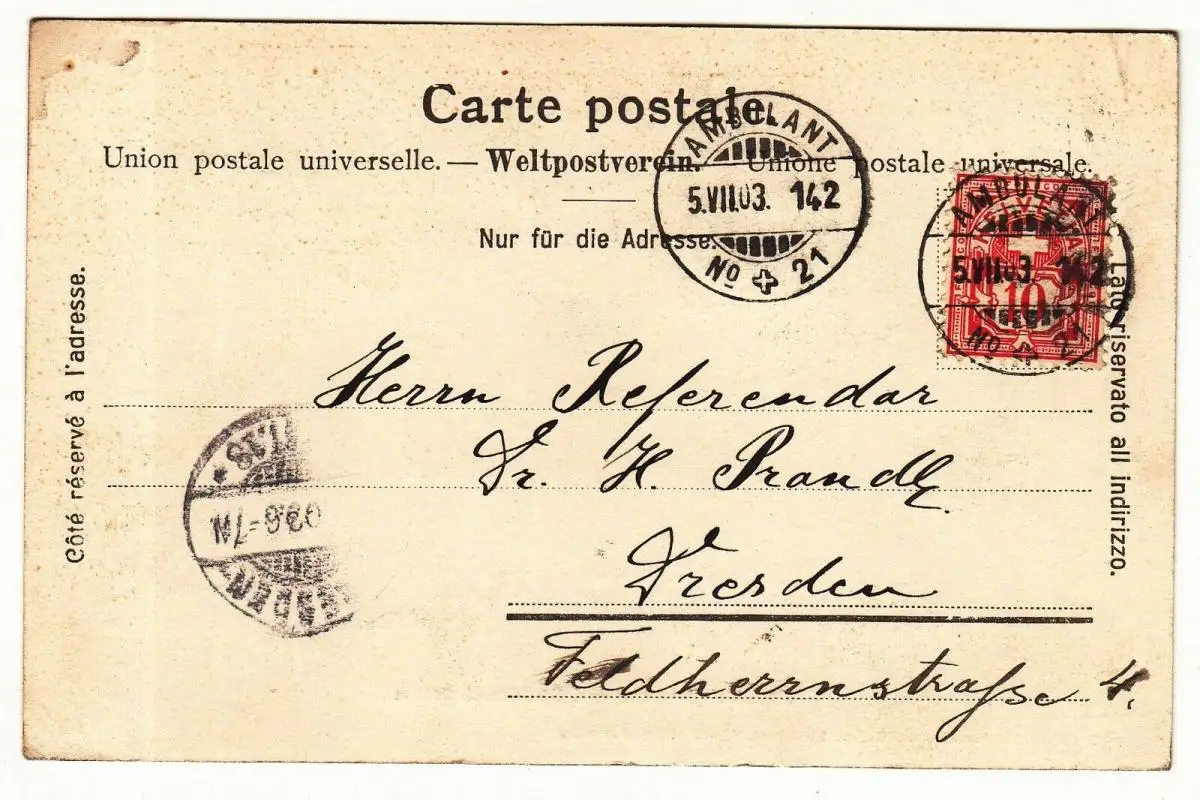 Carte postale.
Union postale universelle. — Weltpostverein. — Unione postale universale.
Nur für die Adresse.
AMBULANT
5.VII.03. 142
No 21
AMBULANT
5.VII.03. 142
No 21
10
Côté réservé à l'adresse.
Lato riservato all indirizzo.
Herrn Referendar
Dr. H. Prandl
Dresden
Feldherrnstrasse 4.
6-7N.